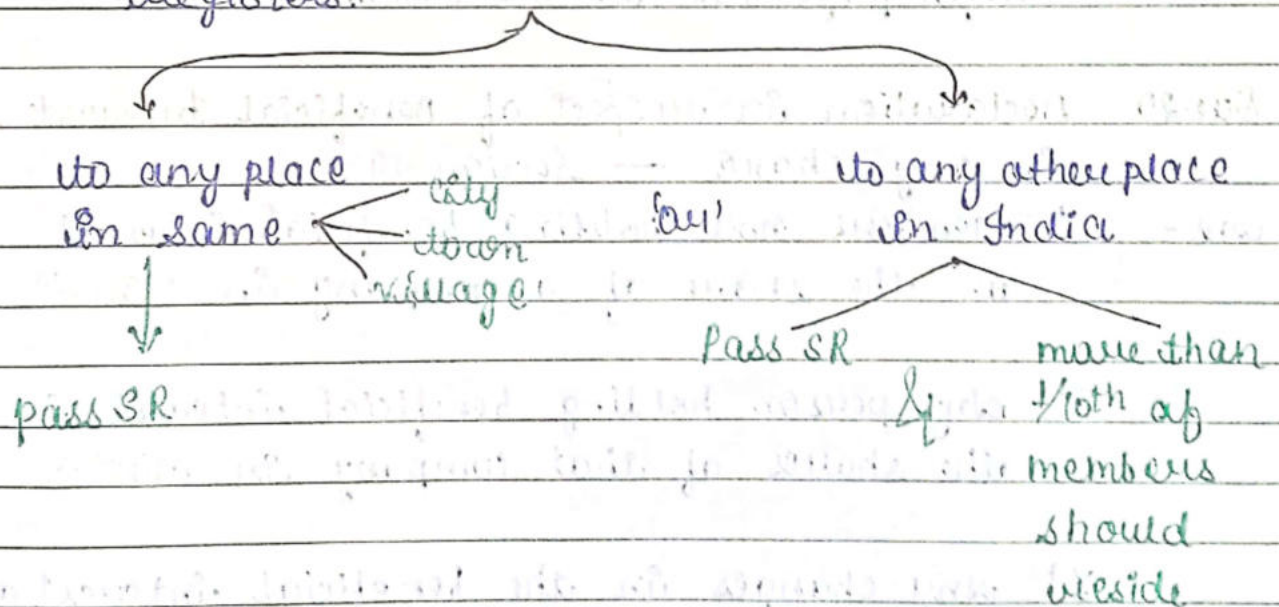 registers.
to any place
in same
city
town
village
'or'
to any other place
in India
pass SR
Pass SR
&
more than
1/10th of
members
should
reside